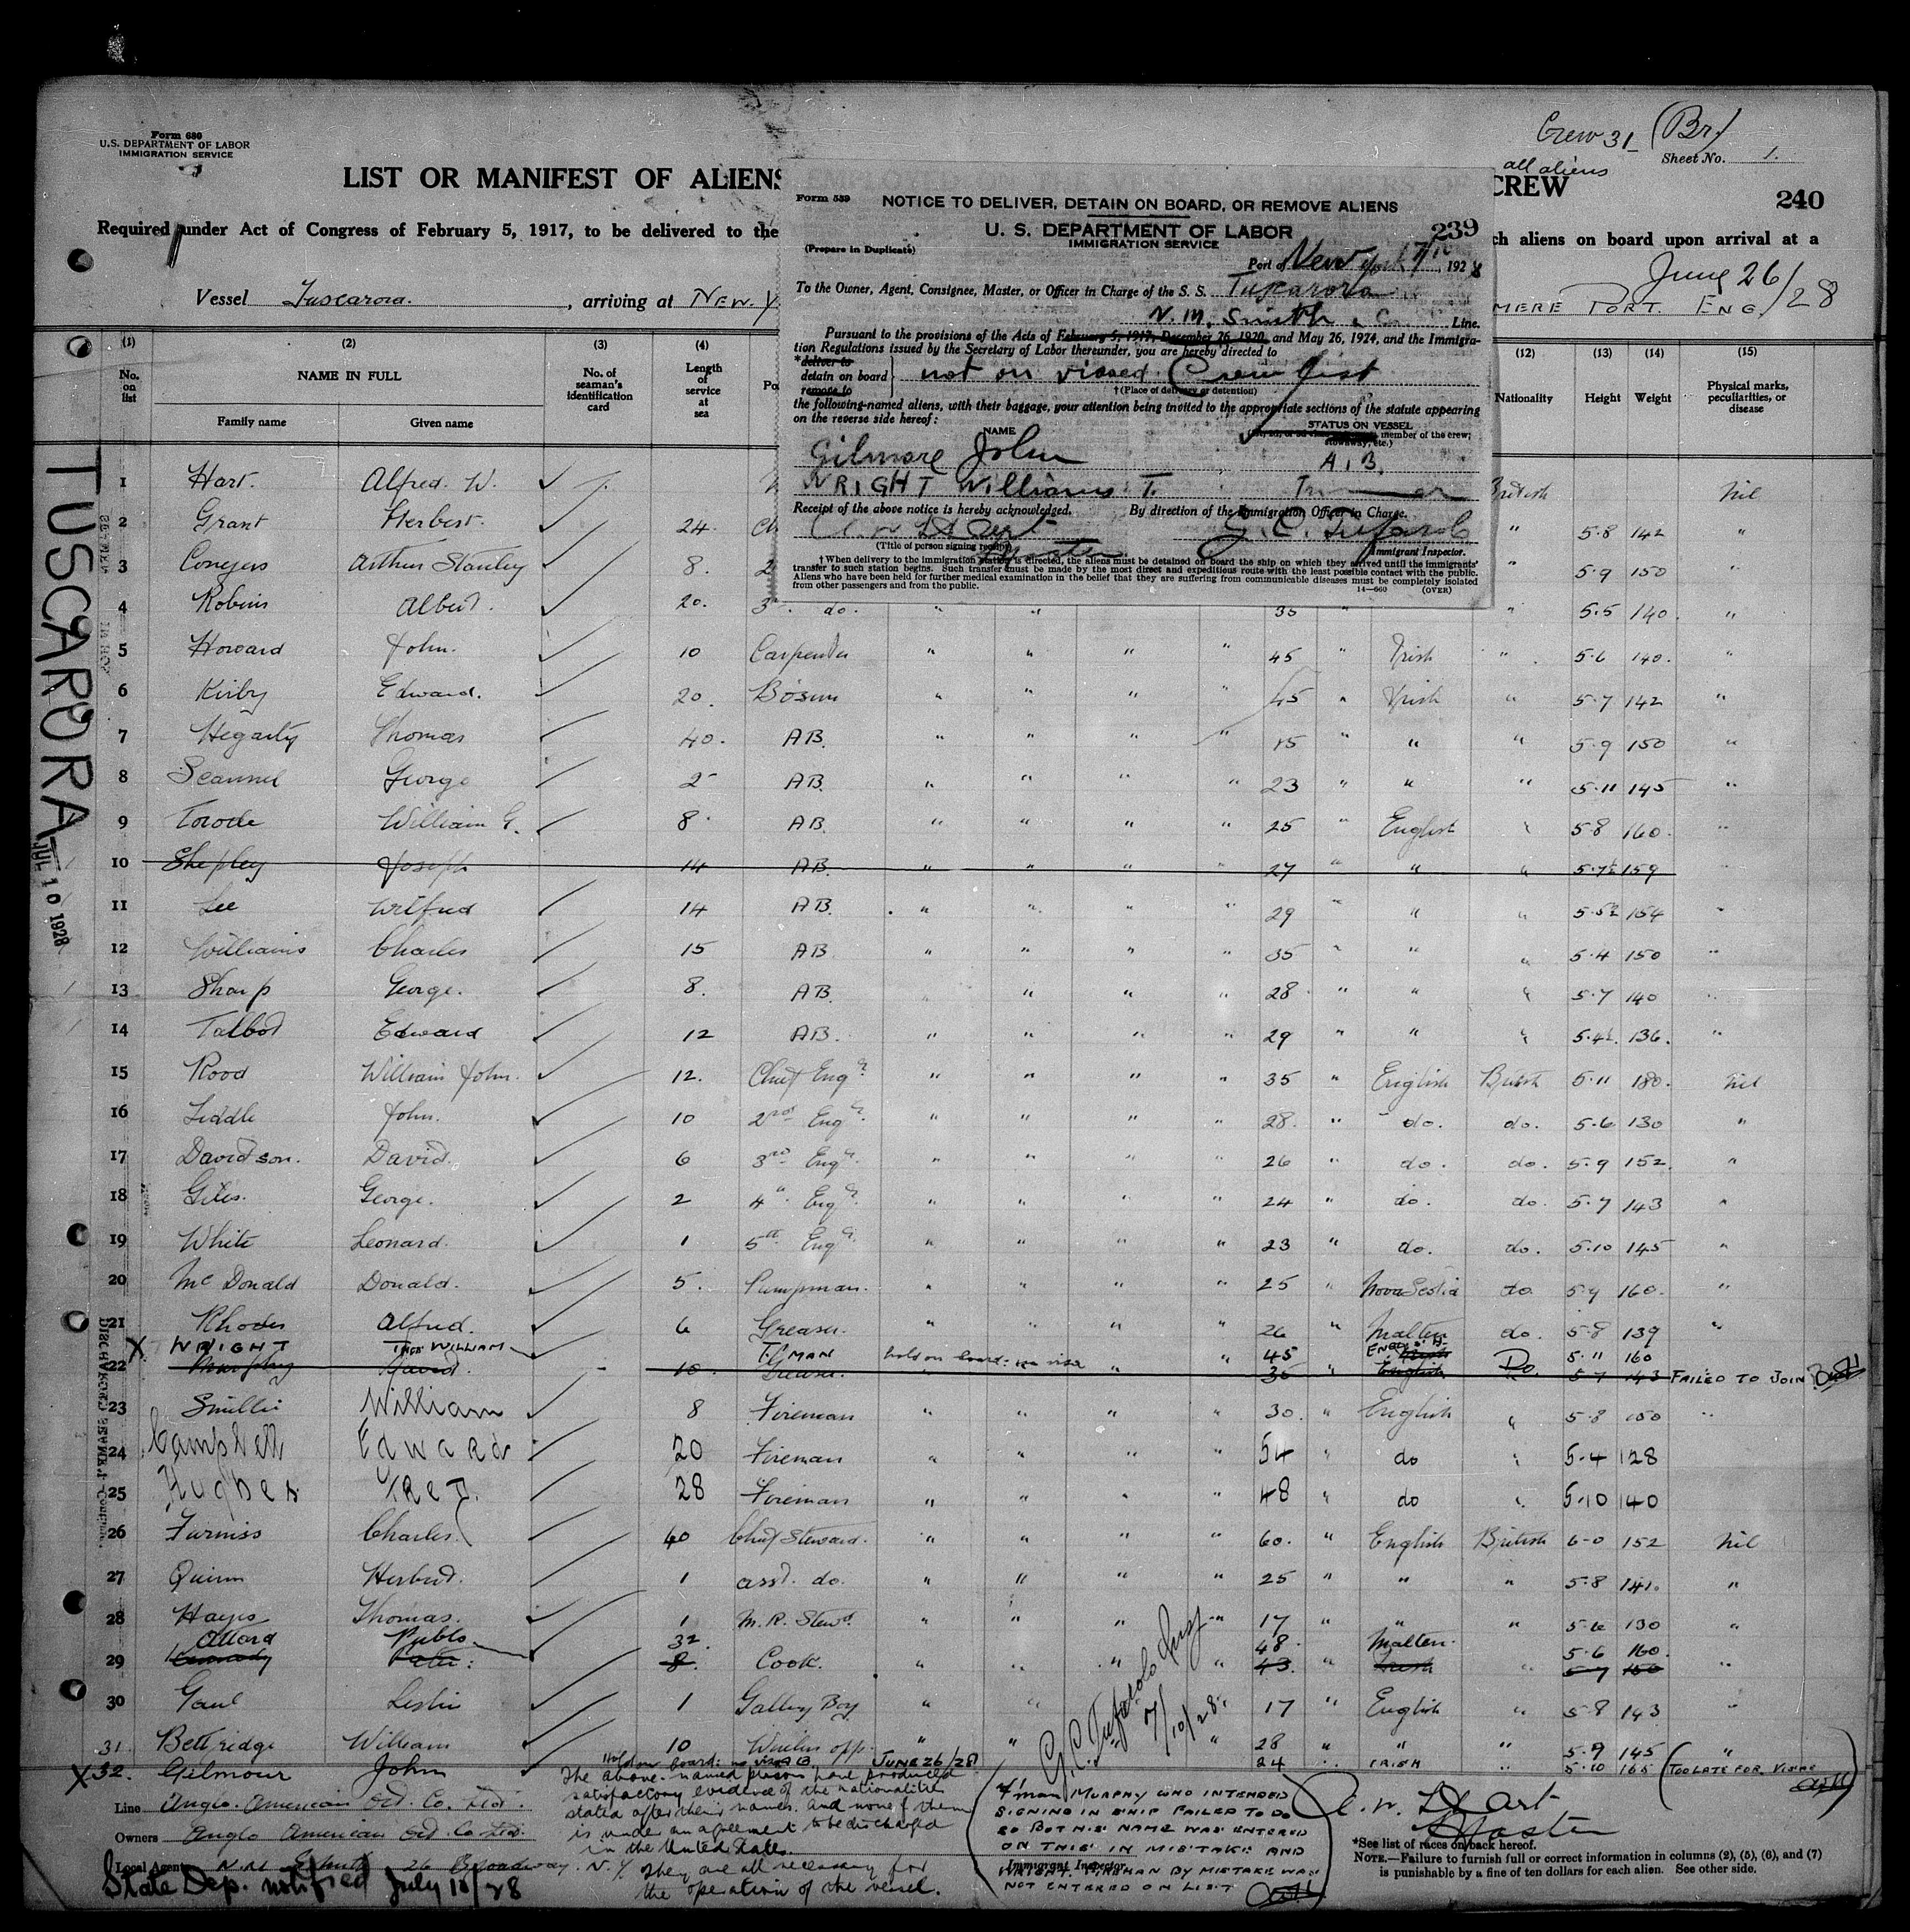 Crew 31 (Br)
all aliens
Form 680
U.S. DEPARTMENT OF LABOR
IMMIGRATION SERVICE
Sheet No. 1.
LIST OR MANIFEST OF ALIENS
CREW
240
Required under Act of Congress of February 5, 1917, to be delivered to the
ch aliens on board upon arrival at a
Vessel Tuscarora. , arriving at NEW Y
MERE PORT. ENG. June 26/28
Form 539
NOTICE TO DELIVER, DETAIN ON BOARD, OR REMOVE ALIENS
U. S. DEPARTMENT OF LABOR
239
IMMIGRATION SERVICE
(Prepare in Duplicate)
Port of New York, 7/10, 1928
To the Owner, Agent, Consignee, Master, or Officer in Charge of the S. S. Tuscarora
N. M. Smith & Co Line.
Pursuant to the provisions of the Acts of February 5, 1917, December 26, 1920, and May 26, 1924, and the Immigra-
tion Regulations issued by the Secretary of Labor thereunder, you are hereby directed to
*deliver to
detain on board
remove to
not on visaed Crew list
†(Place of delivery or detention)
the following-named aliens, with their baggage, your attention being invited to the appropriate sections of the statute appearing
on the reverse side hereof:
NAME
STATUS ON VESSEL
member of the crew;
stowaway, etc.)
Gilmore John A.B.
WRIGHT William T. Trimmer
Receipt of the above notice is hereby acknowledged. By direction of the Immigration Officer in Charge.
(Title of person signing receipt)
Master
Immigrant Inspector.
†When delivery to the immigration station is directed, the aliens must be detained on board the ship on which they arrived until the immigrants'
transfer to such station begins. Such transfer must be made by the most direct and expeditious route with the least possible contact with the public.
Aliens who have been held for further medical examination in the belief that they are suffering from communicable diseases must be completely isolated
from other passengers and from the public.
14—660 (OVER)
(1) (2) (3) (4) (12) (13) (14) (15)
No. on list
NAME IN FULL
Family name
Given name
No. of seaman's identification card
Length of service at sea
Po
Nationality
Height
Weight
Physical marks, peculiarities, or disease
TUSCARORA
JUL 10 1928
1 Hart. Alfred. W. British Nil
2 Grant Herbert. 24. Ch " 5.8 142 "
3 Conyers Arthur Stanley 8. 2 " 5.9 150 "
4 Robins Albert. 20. 3 . do. " " 35 " 5.5 140. "
5 Howard John. 10 Carpenter " " " " 45 " Irish " 5.6 140. "
6 Kirby Edward. 20. Bosun " " " 45 " Irish " 5.7 142 "
7 Hegarty Thomas 40. AB. " " " " " " " 5.9 150 "
8 Scannel George 2 AB. " " " " 23 " " " 5.11 145 "
9 Torode William G. 8. AB. " " " " 25 " English " 5.8 160. "
10 Shepley Joseph 14 AB. " " " " 27 " " " 5.7½ 159
11 Lee Wilfred 14 AB. " " " " 29 " " " 5.5½ 154 "
12 Williams Charles 15 AB " " " " 35 " " " 5.4 150 "
13 Sharp George. 8. AB. " " " " 28 " " " 5.7 140 "
14 Talbot Edward 12 AB. " " " " 29 " " " 5.4½. 136. "
15 Rood William John. 12. Chief Engr " " " " 35 " English British 5.11 180. nil
16 Liddle John. 10 2nd Engr " " " " 28. " do. do. 5.6 130 "
17 Davidson. David. 6 3rd Engr. " " " " 26 " do. do. 5.9 152. "
18 Giles. George. 2 4th Engr " " " " 24 " do. do. 5.7 143 "
19 White Leonard. 1 5th Engr " " " " 23 " do. do. 5.10 145 "
20 McDonald Donald. 5. Pumpman. " " " " 25 " Nova Scotia do. 5.9 160. "
21 Rhodes Alfred. 6 Greaser. " " " " 26 " Malten do. 5.8 139 "
X WRIGHT WILLIAM T. MAN hold on board: no visa 45 ENGLISH 5.11 160
22 Murphy David. 10. Greaser. " " 35 English Do. 5.7 143 FAILED TO JOIN
23 Smillie William 8 Fireman " " " " 30. " English " 5.8 150 "
24 Campbell Edward 20 Fireman " " " " 54 " do " 5.4 128
25 Hughes Fred. 28 Fireman " " " " 48 " do " 5.10 140
26 Furniss Charles. 40 Chief Steward. " " " " 60. " English British 6-0 152 Nil
27 Quinn Herbert. 1 asst. do. " " " " 25 " " " 5.8 141. "
28 Hayes Thomas. 1 M.R. Stewd. " " " " 17 " " " 5.6 130 "
Attard Publo 32. 48. Malten. 5.6 160.
29 Kennedy Peter. 8. Cook. " " " " 43. Irish " 5.7 150 "
30 Gaul Leslie 1 Galley Boy " " " 17 " English " 5.8 143 "
31. Bettridge William 10 Wireless opp. " " " " 28 " " " 5.9 145 "
X 32. Gilmour John Hold on board: no visa AB JUNE 26/28 24 IRISH " 5.10 165 (TOO LATE FOR VISAE
7/10/28.
The above-named persons have produced
satisfactory evidence of the nationalities
stated after their names. and none of them
is under an agreement to be discharged
in the United States.
They are all necessary for
the operation of the vessel.
Line Anglo-American Oil. Co. Ltd.
Owners Anglo American Oil Co Ltd.
Local Agent N.M. Smith 26 Broadway. N.Y.
State Dep. notified July 10/28
F'man MURPHY WHO INTENDED
SIGNING IN SHIP FAILED TO DO
SO BUT HIS NAME WAS ENTERED
ON THIS IN MISTAKE AND
WRIGHT. FIREMAN BY MISTAKE WAS
NOT ENTERED ON LIST
Immigrant Inspector.
A. W. Hart
Master
*See list of races on back hereof.
NOTE.—Failure to furnish full or correct information in columns (2), (5), (6), and (7)
is punishable by a fine of ten dollars for each alien. See other side.